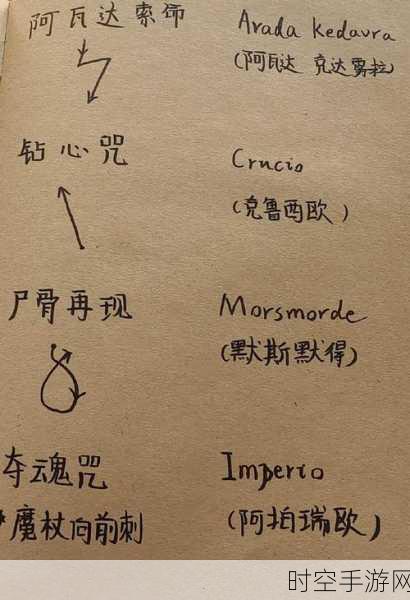 阿瓦达索命 Avada Kedavra
(阿瓦达 克达雾拉)
钻心咒 Crucio
(克鲁西欧)
尸骨再现 Morsmorde
(默斯默得)
夺魂咒 Imperio
魔杖向前刺 (阿拍瑞欧)
时空手游网